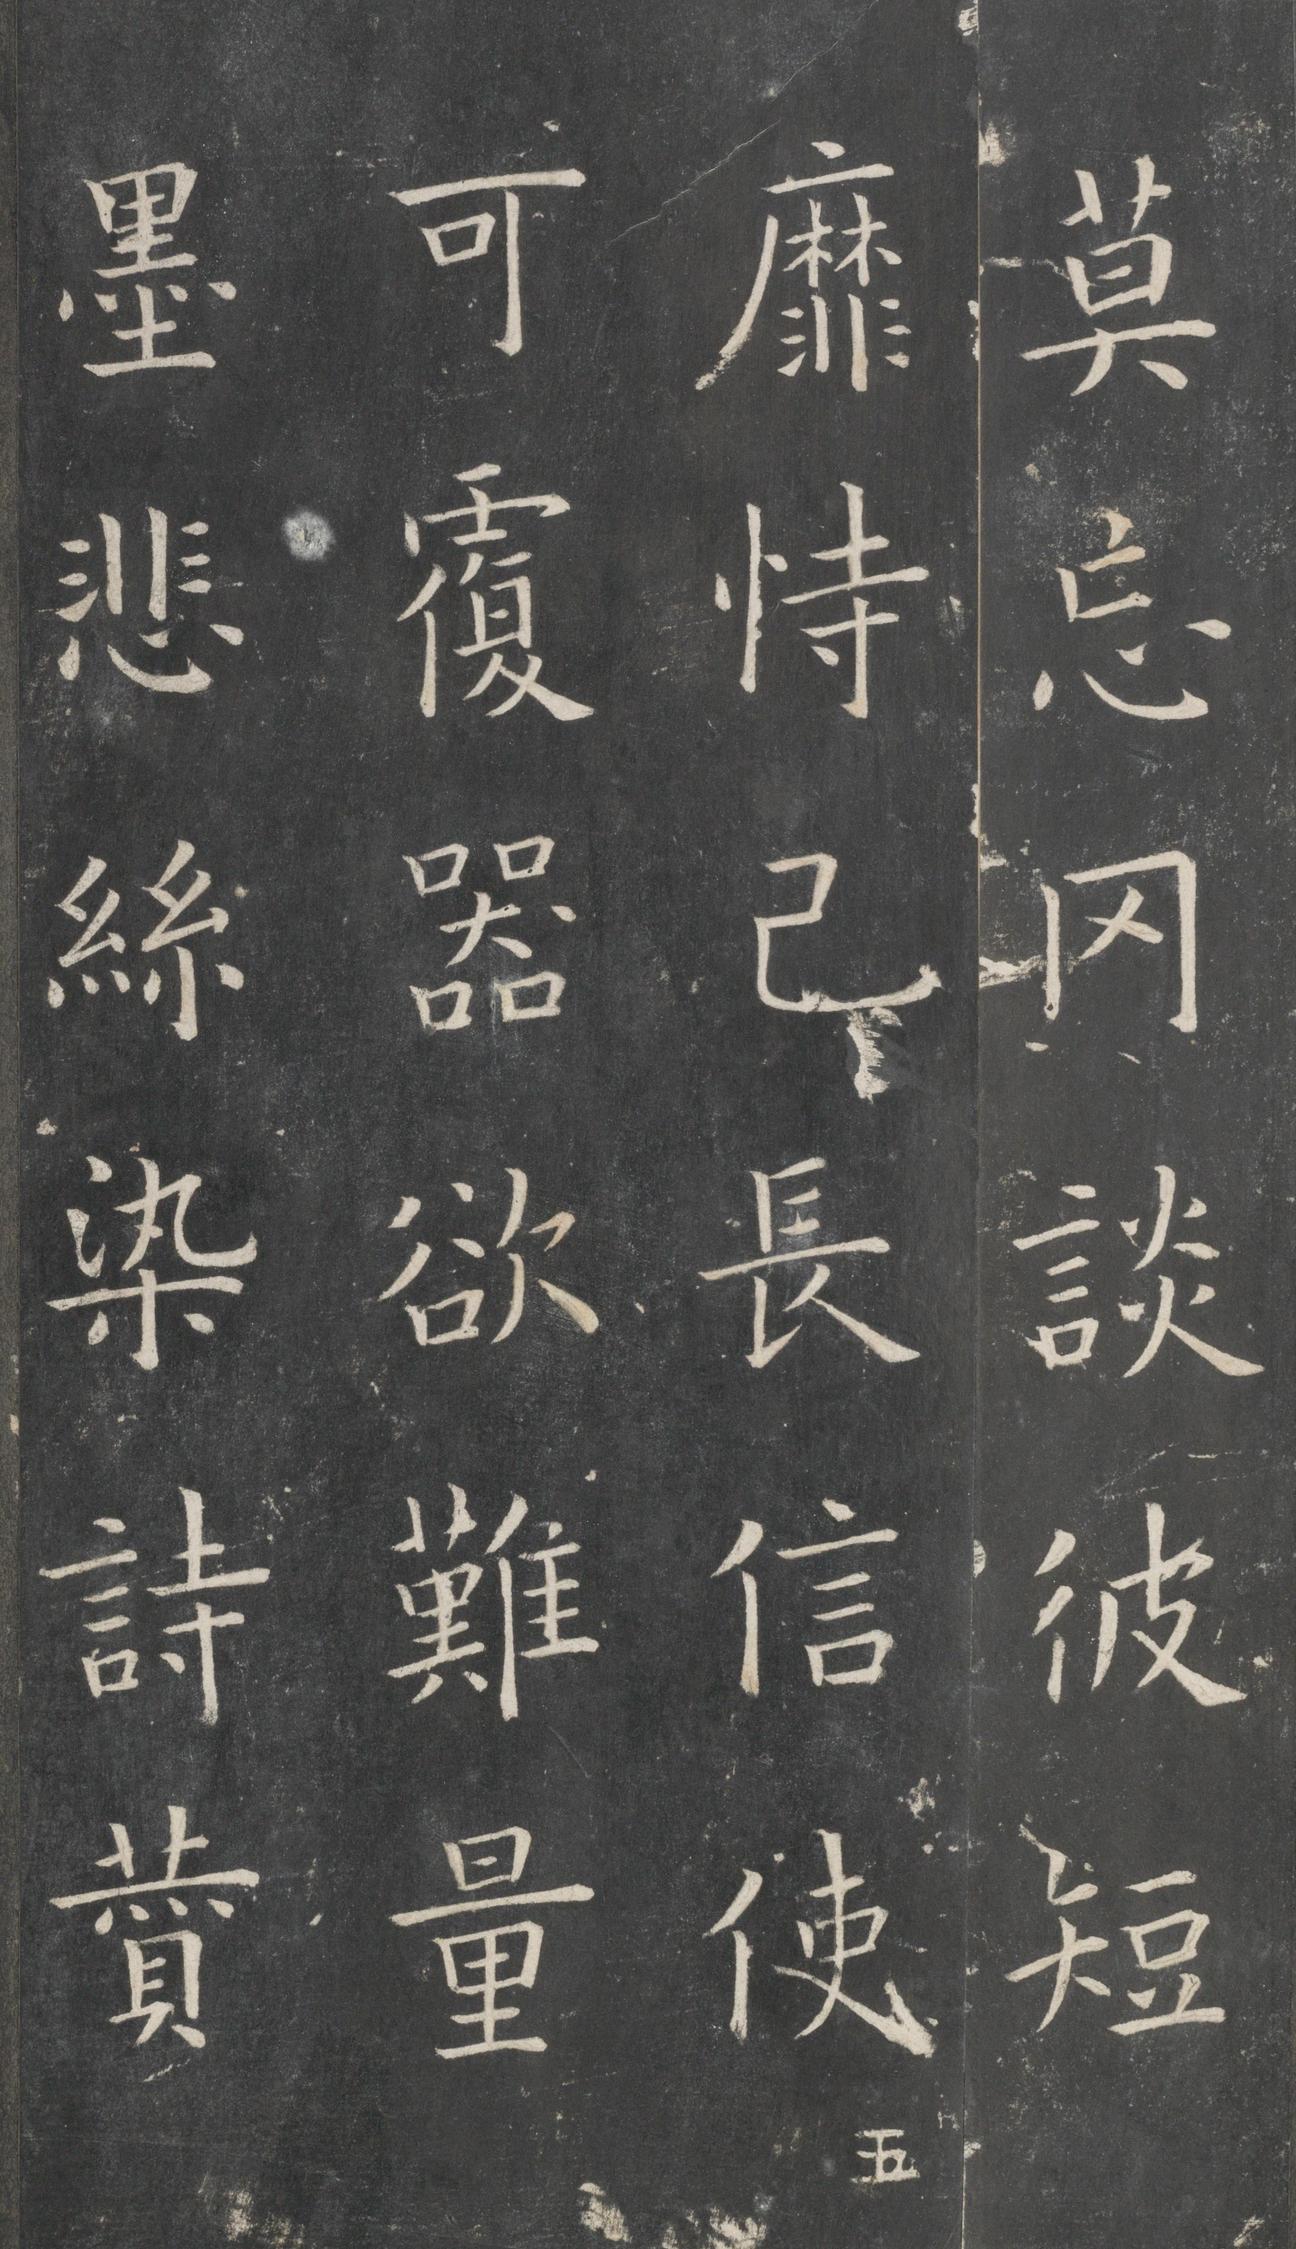 莫忘罔談彼短
靡恃己長信使
五
可覆器欲難量
墨悲絲染詩讚